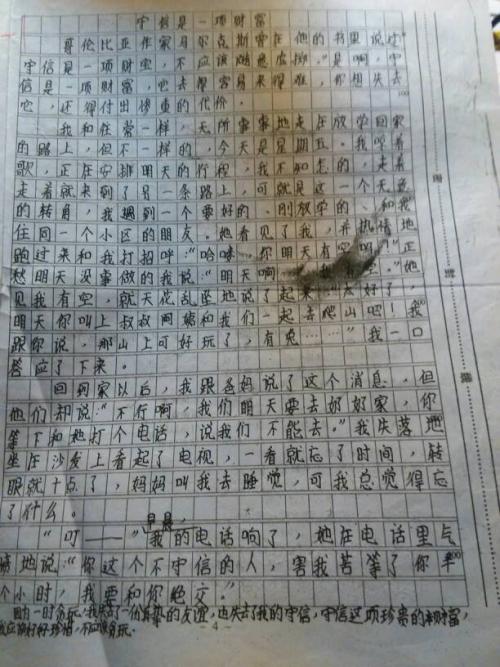 守信是一项财富
哥伦比亚作家马尔克斯曾在他的书里说过“
守信是一项财宝，不应该随意虚掷。”是啊，守
信是一项财富，它去得容易来得难，你想失去
它，还得付出惨重的代价。
我和往常一样，无所事事地走在放学回家
的路上，但不一样的，今天是星期五。我哼着
歌，正在安排明天的行程，我不知怎的，走着
走着就来到了另一条路上，可就是这一个无意
的转角，我遇到一个要好的、刚放学的、和我
住同一个小区的朋友。她看见了我，并热情地
跑过来和我打招呼：“哈喽，你明天有空吗？”正
愁明天没事做的我说：“明天啊 空。”她
见我有空，就天花乱坠地说了起来：“太好了，
明天你叫上叔叔阿姨和我们一起去爬山吧！我
跟你说，那山上可好玩了，有兔……”我一口
答应了下来。
回到家以后，我跟爸妈说了这个消息，但
他们却说：“不行啊，我们明天要去奶奶家，你
等下和她打个电话，说我们不能去。”我失落地
坐在沙发上看起了电视，一看就忘了时间，转
眼就十点了，妈妈叫我去睡觉，可我总觉得忘
了什么。
早晨，
“叮——”我的电话响了，她在电话里气
愤地说：“你这个不守信的人，害我苦等了你半
个小时，我要和你绝交。”
因为一时贪玩，我失去了一份真挚的友谊，也失去了我的守信，守信这项珍贵的财富，
我应该好好珍惜，不应该贪玩.
- 4 -